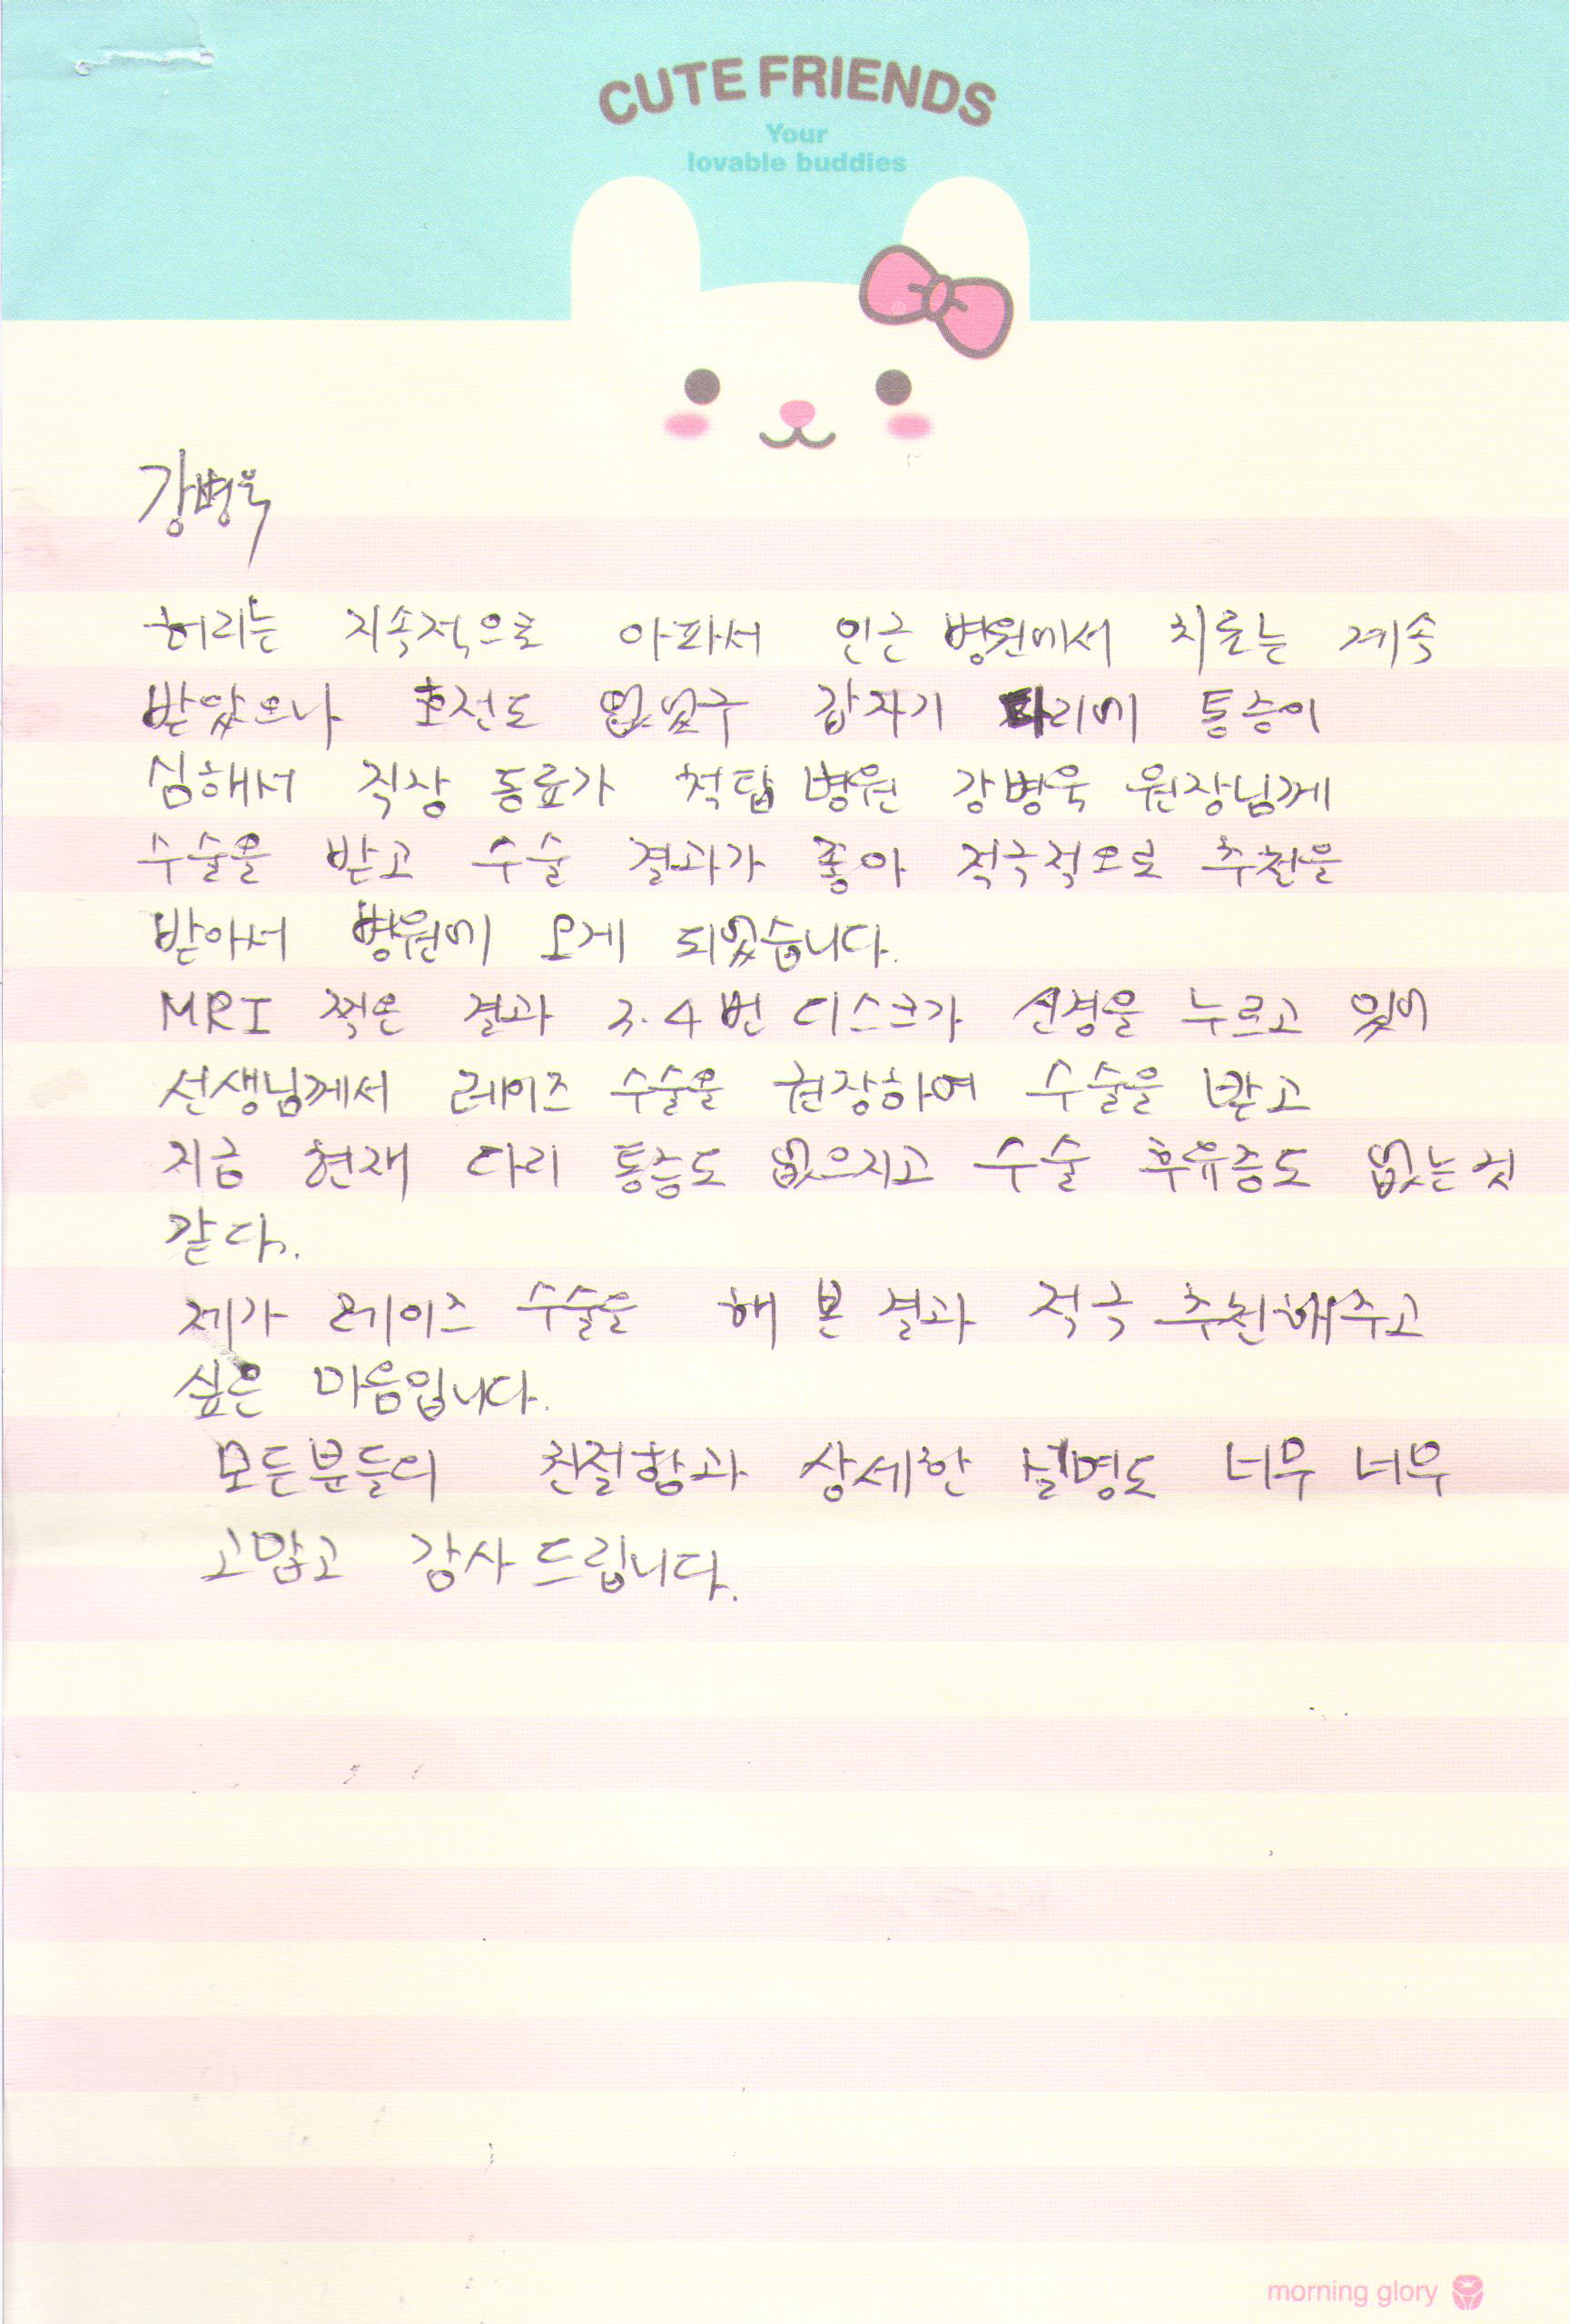 CUTE FRIENDS
Your
lovable buddies
강병욱
허리는 지속적으로 아파서 인근 병원에서 치료는 계속
받았으나 호전도 없었구 갑자기 다리에 통증이
심해서 직장 동료가 척탑 병원 강병욱 원장님께
수술을 받고 수술 결과가 좋아 적극적으로 추천을
받아서 병원에 오게 되었습니다.
MRI 찍은 결과 3.4번 디스크가 신경을 누르고 있어
선생님께서 레이즈 수술을 권장하여 수술을 받고
지금 현재 다리 통증도 없으지고 수술 후유증도 없는것
같다.
제가 레이즈 수술을 해 본 결과 적극 추천해주고
싶은 마음입니다.
모든분들의 친절함과 상세한 설명도 너무 너무
고맙고 감사드립니다.
morning glory